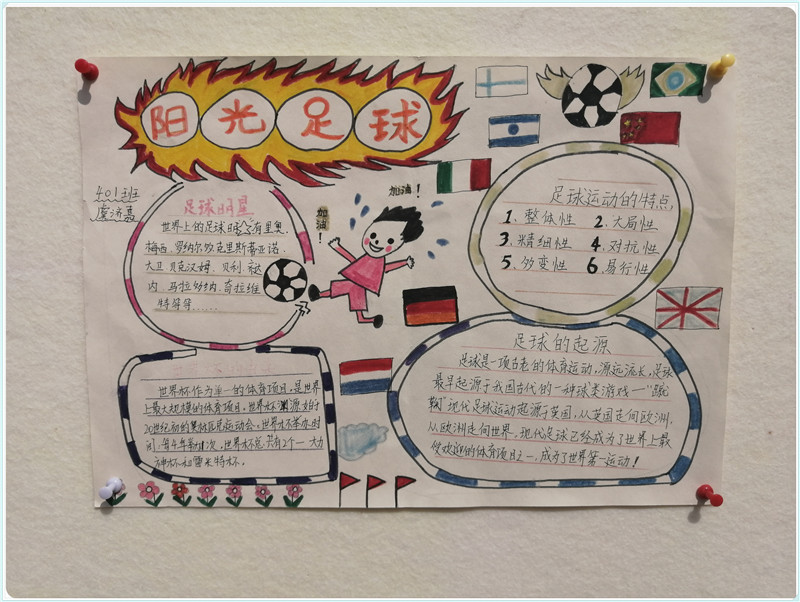 阳光足球
401班
虞济嘉
加油！
加油！
足球明星
世界上的足球明星有里奥.
梅西.罗纳尔欧克里斯蒂亚诺.
大卫贝克汉姆.贝利
内 马拉多纳.奇拉维
特等等……
足球运动的特点
1、整体性 2、大局性
3、精细性 4、对抗性
5、多变性 6、易行性
足球的起源
足球是一项古老的体育运动,源远流长,足球
最早起源于我国古代的一种球类游戏—"蹴
鞠"现代足球运动起源于英国,从英国走向欧洲,
从欧洲走向世界.现代足球已经成为了世界上最
受欢迎的体育项目之一,成为了世界第一运动！
世界杯作为单一的体育项目,是世界
上最大规模的体育项目.世界杯源始于
20世纪初的奥林匹克运动会.世界杯举办时
间:每4年举办1次.世界杯总共有2个一大力
神杯和雷米特杯.